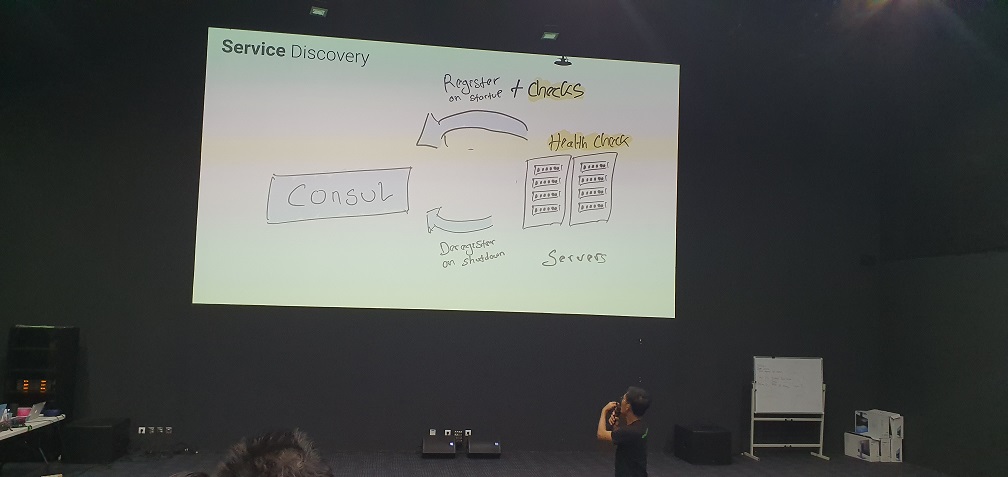 Service Discovery
Register + checks
on startup
Health check
Consul
Deregister
on shutdown
Servers